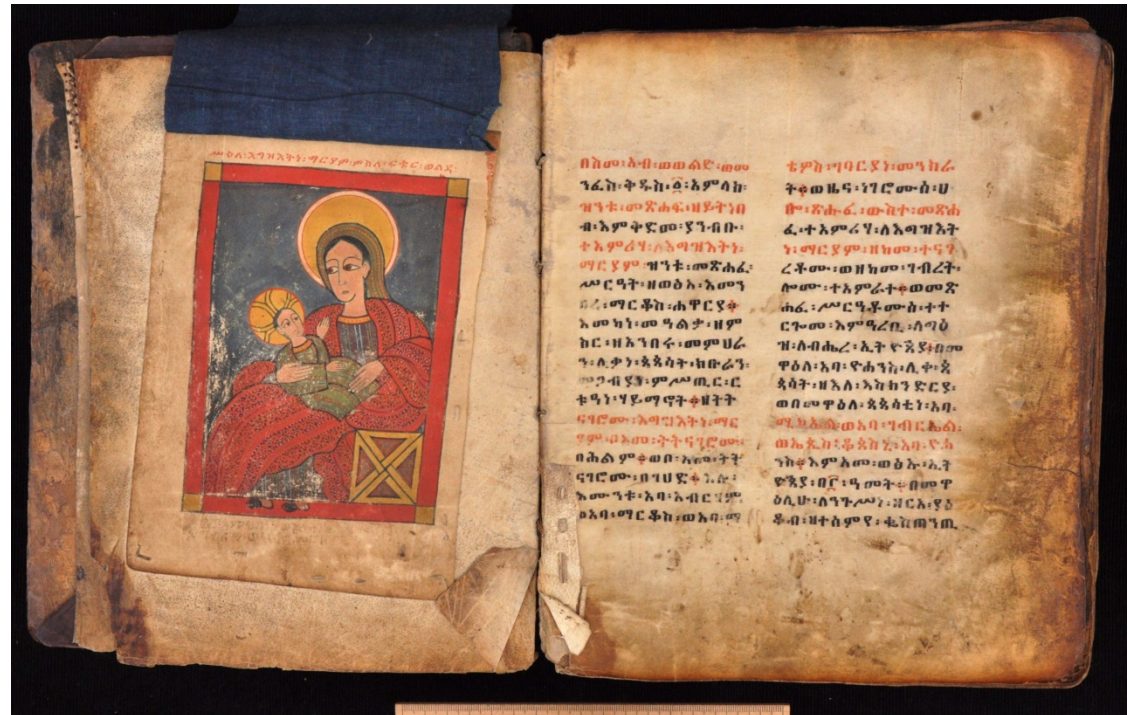 ሥዕለ፡እግዝእትነ፡ማርያም፡ምስለ፡ፍቁር፡ወልዳ፡
በስመ፡አብ፡ወወልድ፡ወመ
ንፈስ፡ቅዱስ፡፩፡አምላክ፡
ዝንቱ፡መጽሐፍ፡ዘይትነበ
ብ፡እምቅድመ፡ያንብቡ፡
ተአምሪሃ፡ለእግዝእትነ፡
ማርያም፡ዝንቱ፡መጽሐፈ፡
ሥርዓት፡ዘወፅአ፡እመን
ማርቆስ፡ሐዋርያ።
እመካነ፡መዓልቃ፡ዘም
ስር፡ዘአንበሩ፡መምህራ
ን፡ሊቃነ፡ጳጳሳት፡ክቡራን፡
ምሥጢር፡ር
ቱዓነ፡ሃይማኖት።ዘትት
ናገሮሙ፡እግዝእትነ፡ማር
ያም፡በአመ፡ትትናገሮሙ፡
በሕልም።ወቦ፡አመ፡ትት
ናገሮሙ፡በገሀድ።
እሙንቱ፡አባ፡አብርሃም፡
ወአባ፡ማርቆስ፡ወአባ፡ማ
ቴዎስ፡ግባርያነ፡መንክራ
ት።ወዜና፡ነገሮሙሰ፡ሀ
ሎ፡ጽሑፈ፡ውስተ፡መጽሐ
ፈ፡ተአምሪሃ፡ለእግዝእት
ነ፡ማርያም፡ዘከመ፡ተናገ
ረቶሙ፡ወዘከመ፡ገብረት፡
ሎሙ፡ተአምራተ።ወመጽ
ሐፈ፡ሥርዓቶሙሰ፡ተተ
ርጐመ፡እምዓረቢ፡ለግዕ
ዝ፡ለብሔረ፡ኢትዮጵያ።በመ
ዋዕለ፡አባ፡ዮሐንስ፡ሊቀ፡ጳ
ጳሳት፡ዘእለ፡እስክንድርያ፡
ወበመዋዕለ፡ጳጳሳቲነ፡አባ፡
ሚካኤል፡ወአባ፡ገብርኤል፡
ወኤጲስ፡ቆጶስኒ፡አባ፡ዮሐ
ንስ።እምአመ፡ወፅኡ፡ኢት
ዮጵያ፡በ፫፡ዓመት።በመዋ
ዕሊሁ፡ለንጉሥነ፡ዘርአ፡ያዕ
ቆብ፡ዘተሰምየ፡ቈስጠንጢ